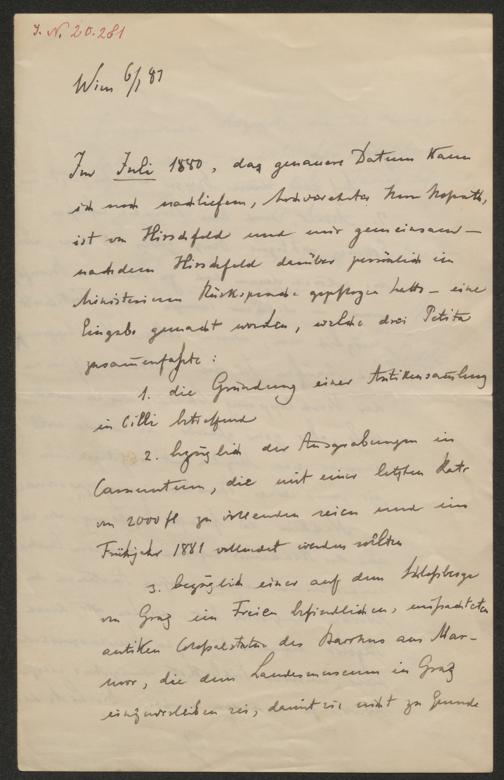 J. N. 20.281
Wien 6/1 81
Im Juli 1880, das genauere Datum kann
ich noch nachliefern, hochverehrter Herr Hofrath,
ist von Hirschfeld und mir gemeinsam –
nachdem Hirschfeld darüber persönlich im
Ministerium Rücksprache gepflogen hatte – eine
Eingabe gemacht worden, welche drei Petita
zusammenfaßte:
1. die Gründung einer Antikensammlung
in Cilli betreffend
2. bezüglich der Ausgrabungen in
Carnuntum, die mit einer letzten Rate
von 2000 fl zu vollenden seien und im
Frühjahr 1881 vollendet werden sollten
3. bezüglich einer auf dem Schloßberge
von Graz im Freien befindlichen,
antiken Coloßalstatue des Bacchus aus Mar-
mor, die dem Landesmuseum in Graz
einzuverleiben sei, damit sie nicht zu Grunde